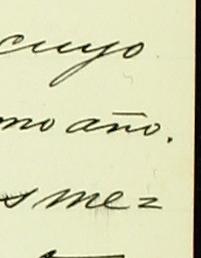 cuyo
mo año.
s me=